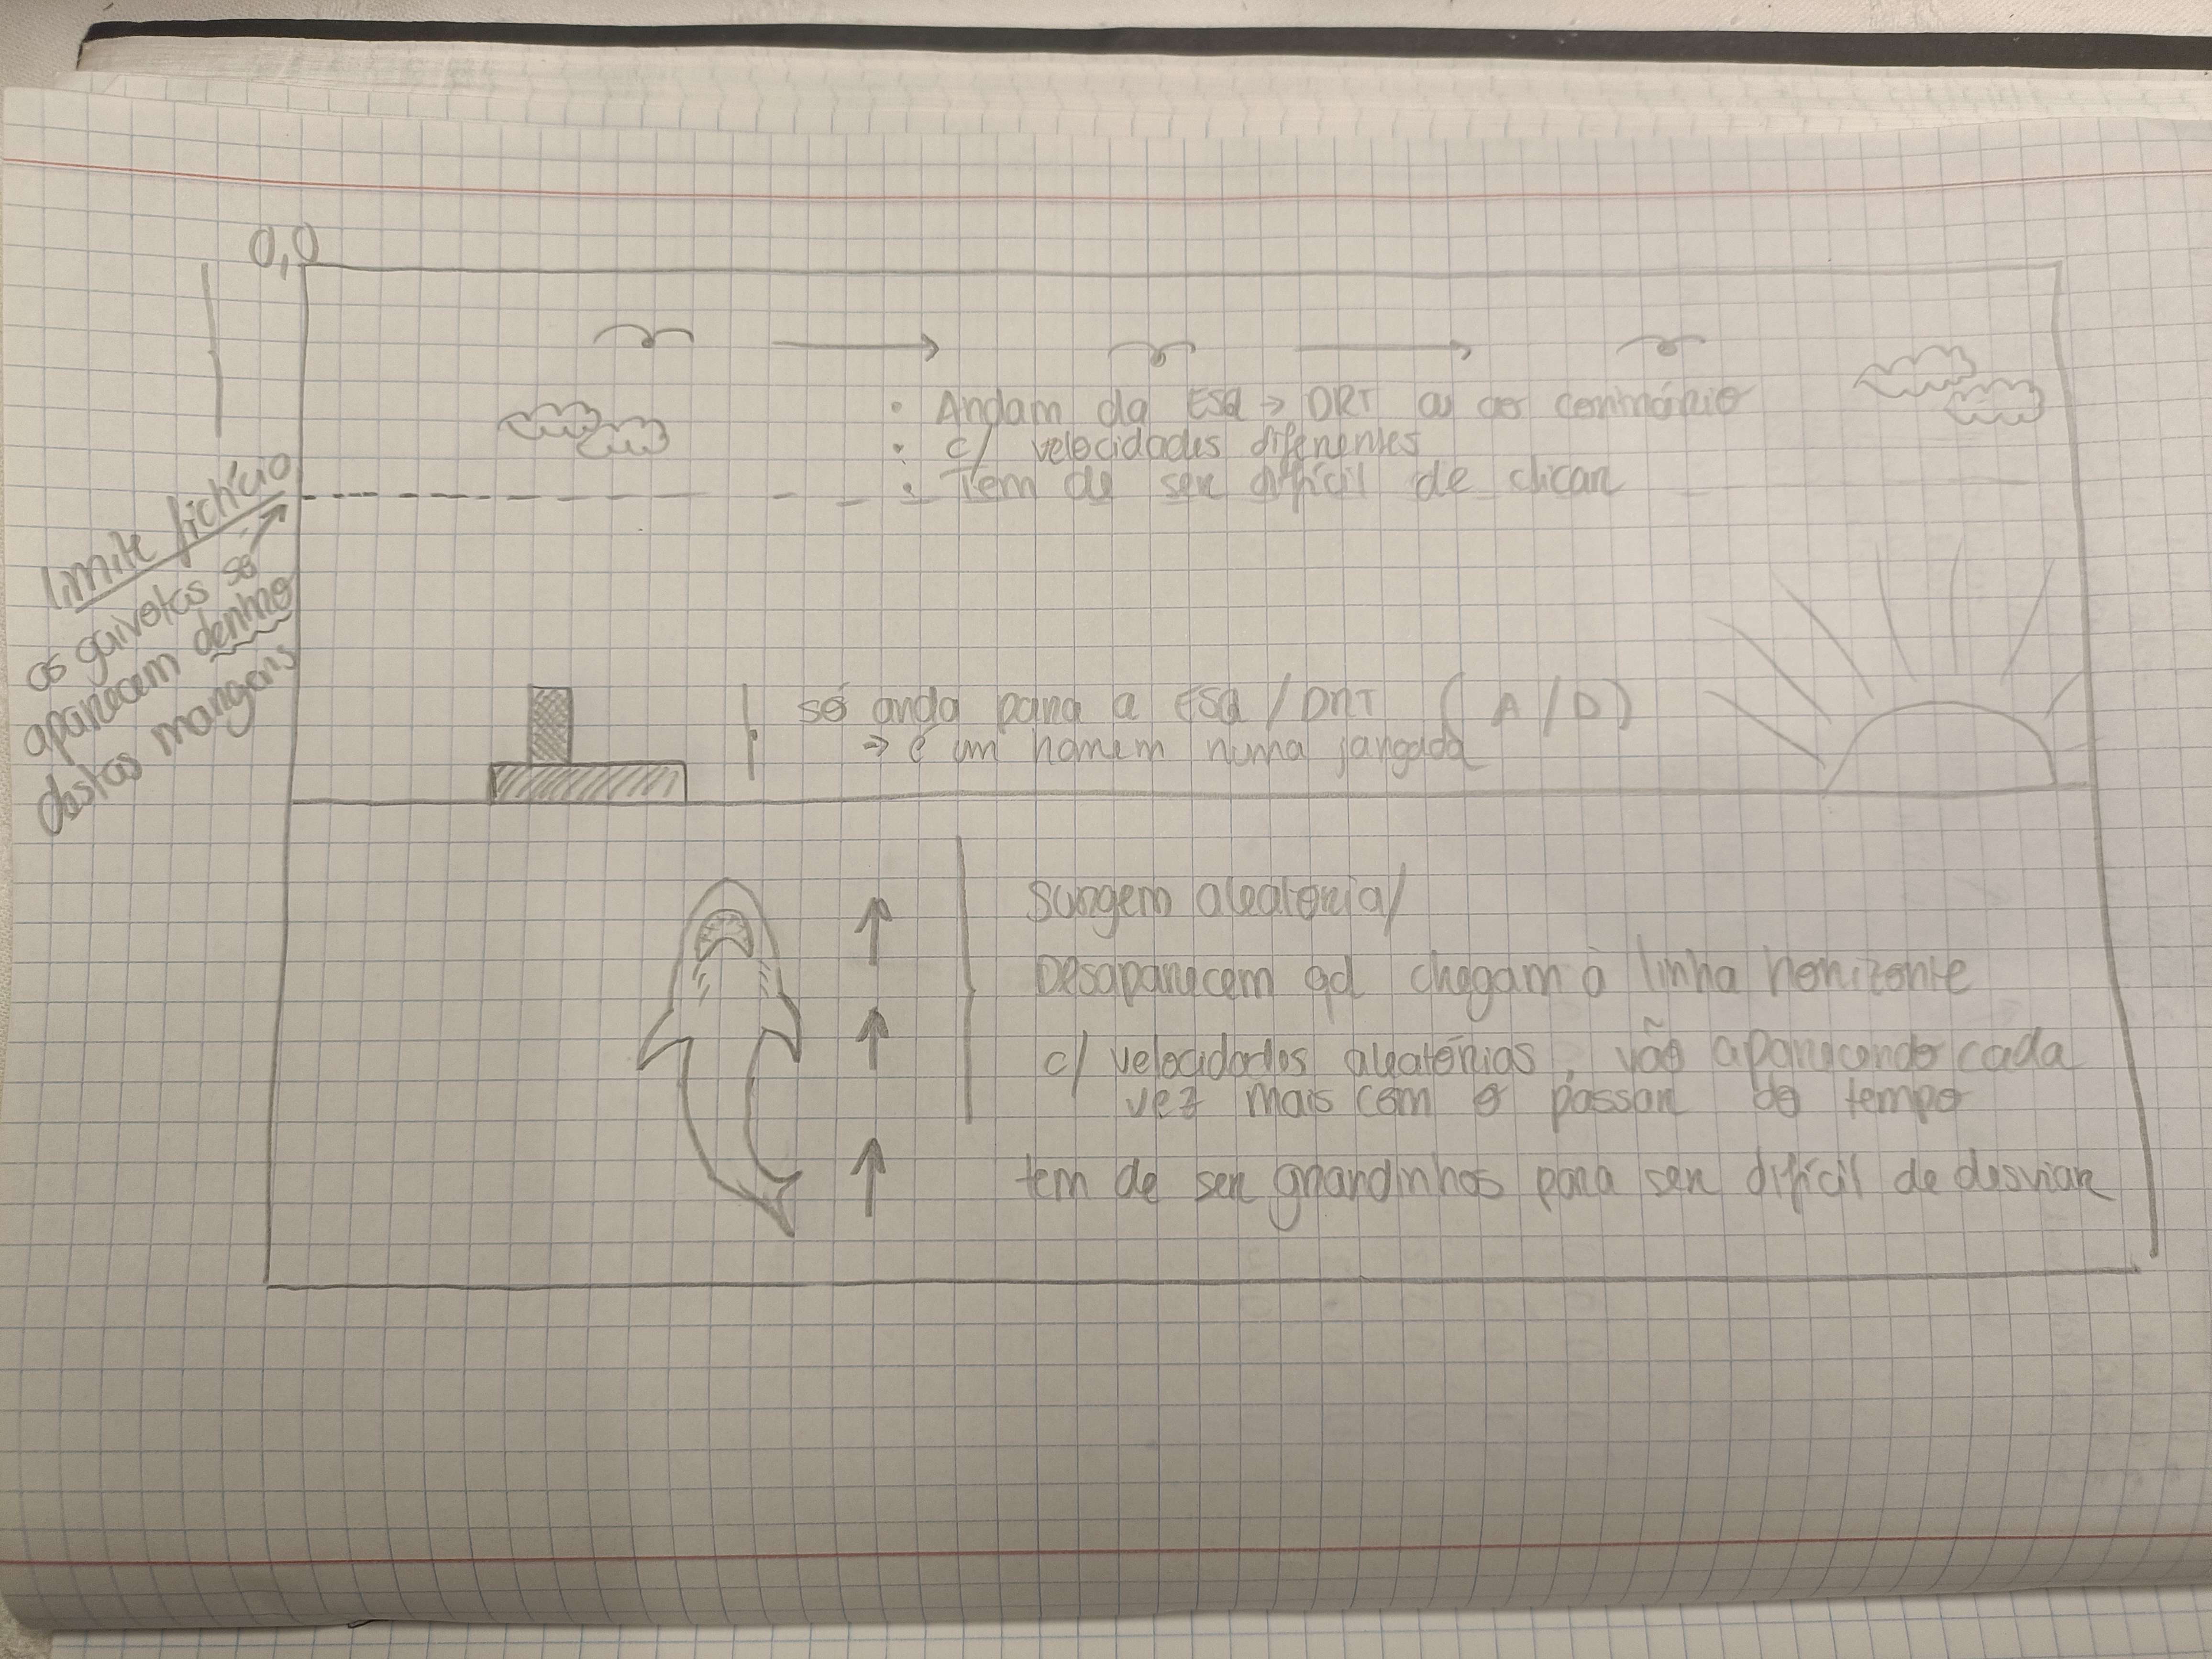 0,0
• Andam da ESQ → DRT ou ao contrário
• c/ velocidades diferentes
• Tem de ser difícil de clicar
limite fictício
as gaivotas só
aparecem dentro
destas margens
só anda para a ESQ / DRT ( A / D )
⇒ é um homem numa jangada
Surgem aleatoria/
Desaparecem qd chegam à linha horizonte
c/ velocidades aleatórias, vão aparecendo cada
vez mais com o passar do tempo
tem de ser grandinhos para ser difícil de desviar